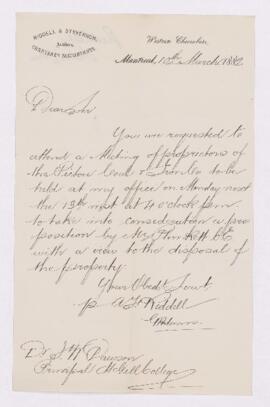 RIDDELL & STEVENSON,
Auditors
CHARTERED ACCOUNTANTS.
Western Chambers,
Montreal, 10th March 1882
Dear Sir
You are requested to
attend a Meeting of proprietors of
the Pictou Coal & Iron Co to be
held at my office on Monday next
the 13th inst at 4 o'clock p.m
to take into consideration a pro
position by Mr Plunkett CE
with a view to the disposal of
the property.
Your Obedt Servt
p A F Riddell
Dr J. W Dawson
Principal McGill College